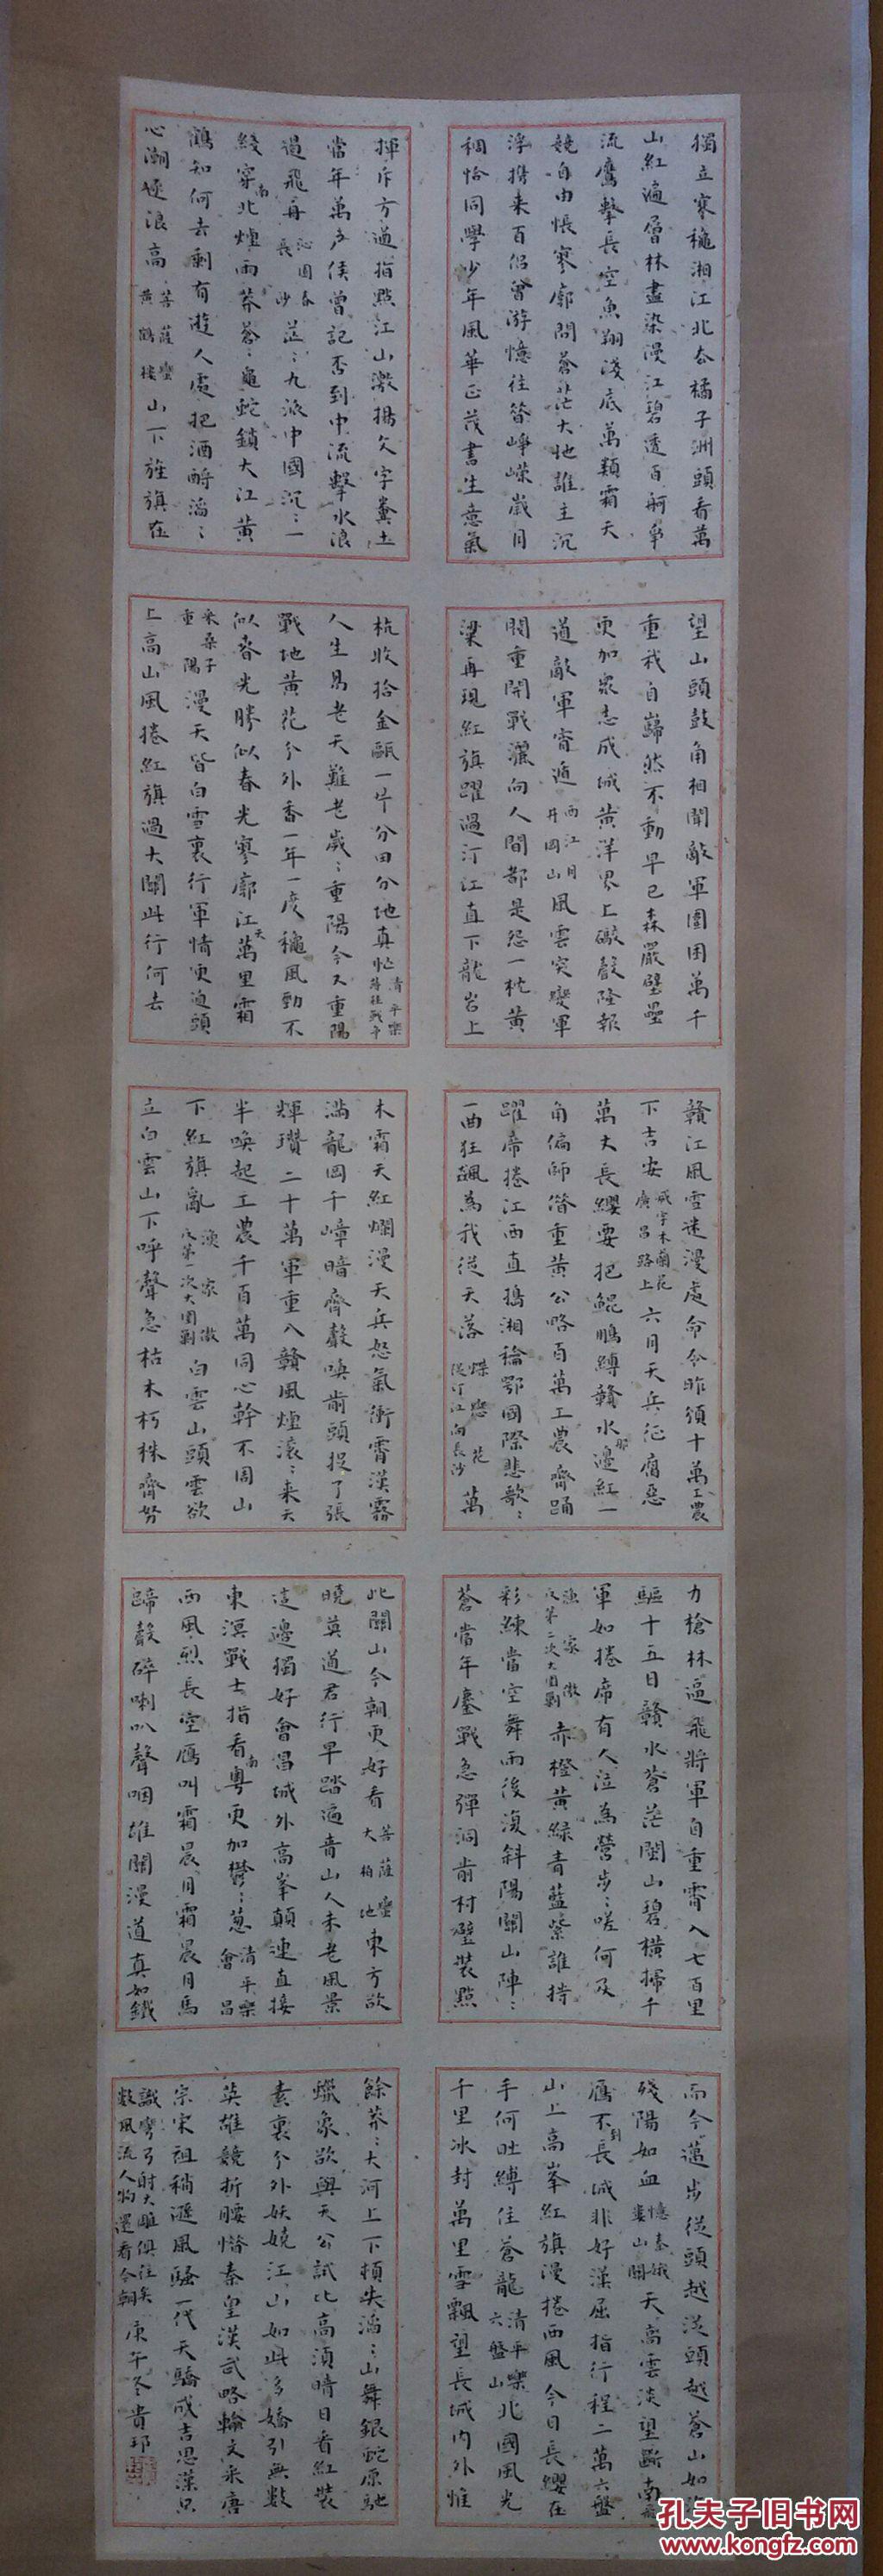 獨立寒穐湘江北去橘子洲頭看萬
山紅遍層林盡染漫江碧透百舸爭
流鷹擊長空魚翔淺底萬類霜天
競自由悵寥廓問蒼茫大地誰主沉
浮携来百侶曾游憶往昔崢嶸歲月
稠恰同學少年風華正茂書生意氣
揮斥方遒指點江山激揚文字糞土
當年萬戶侯曾記否到中流擊水浪
遏飛舟 沁園春 長沙 茫:九派中國沉:一
綫穿南北煙雨莽蒼:龜蛇鎖大江黃
鶴知何去剩有遊人處把酒酹滔:
心潮逐浪高 菩薩蠻 黃鶴樓 山下旌旗在
望山頭鼓角相聞敵軍圍困萬千
重我自巋然不動早已森嚴壁壘
更加衆志成城黃洋界上礮聲隆報
道敵軍宵遁 西江月 井岡山 風雲突變軍
閥重開戰灑向人間都是怨一枕黃
粱再現紅旗躍過汀江直下龍岩上
杭收拾金甌一片分田分地真忙 清平樂 蔣桂戰爭
人生易老天難老歲:重陽今又重陽
戰地黃花分外香一年一度穐風勁不
似春光勝似春光寥廓江天萬里霜
采桑子 重陽 漫天皆白雪裏行軍情更迫頭
上高山風捲紅旗過大關此行何去
贛江風雪迷漫處命令昨頒十萬工農
下吉安 減字木蘭花 廣昌路上 六月天兵征腐惡
萬丈長纓要把鯤鵬縛贛水那邊紅一
角偏師借重黃公略百萬工農齊踊
躍席捲江西直搗湘和鄂國際悲歌:
一曲狂飆為我從天落 蝶戀花 從汀江向長沙 萬
木霜天紅爛漫天兵怒氣衝霄漢霧
滿龍岡千嶂暗齊聲喚前頭捉了張
輝瓚二十萬軍重入贛風煙滾:来天
半喚起工農千百萬同心幹不周山
下紅旗亂 漁家傲 反第一次大圍剿 白雲山頭雲欲
立白雲山下呼聲急枯木朽株齊努
力槍林逼飛將軍自重霄入七百里
驅十五日贛水蒼茫閩山碧橫掃千
軍如捲席有人泣為營步:嗟何及
漁家傲 反第二次大圍剿 赤橙黃綠青藍紫誰持
彩練當空舞雨後復斜陽關山陣:
蒼當年鏖戰急彈洞前村壁裝點
此關山今朝更好看 菩薩蠻 大柏地 東方欲
曉莫道君行早踏遍青山人未老風景
這邊獨好會昌城外高峯顛連直接
東溟戰士指看南粵更加鬱:葱 清平樂 會昌
西風烈長空雁叫霜晨月霜晨月馬
蹄聲碎喇叭聲咽雄關漫道真如鐵
而今邁步從頭越從頭越蒼山如海
殘陽如血 憶秦娥 婁山關 天高雲淡望斷南飛
雁不到長城非好漢屈指行程二萬六盤
山上高峯紅旗漫捲西風今日長纓在
手何時縛住蒼龍 清平樂 六盤山 北國風光
千里冰封萬里雪飄望長城內外惟
餘莽:大河上下頓失滔:山舞銀蛇原馳
蠟象欲與天公試比高須晴日看紅裝
素裹分外妖嬈江山如此多嬌引無數
英雄競折腰惜秦皇漢武略輸文采唐
宗宋祖稍遜風騷一代天驕成吉思漢只
識彎弓射大雕俱往矣
數風流人物還看今朝 庚午冬貴邛
孔夫子旧书网
www.kongfz.com